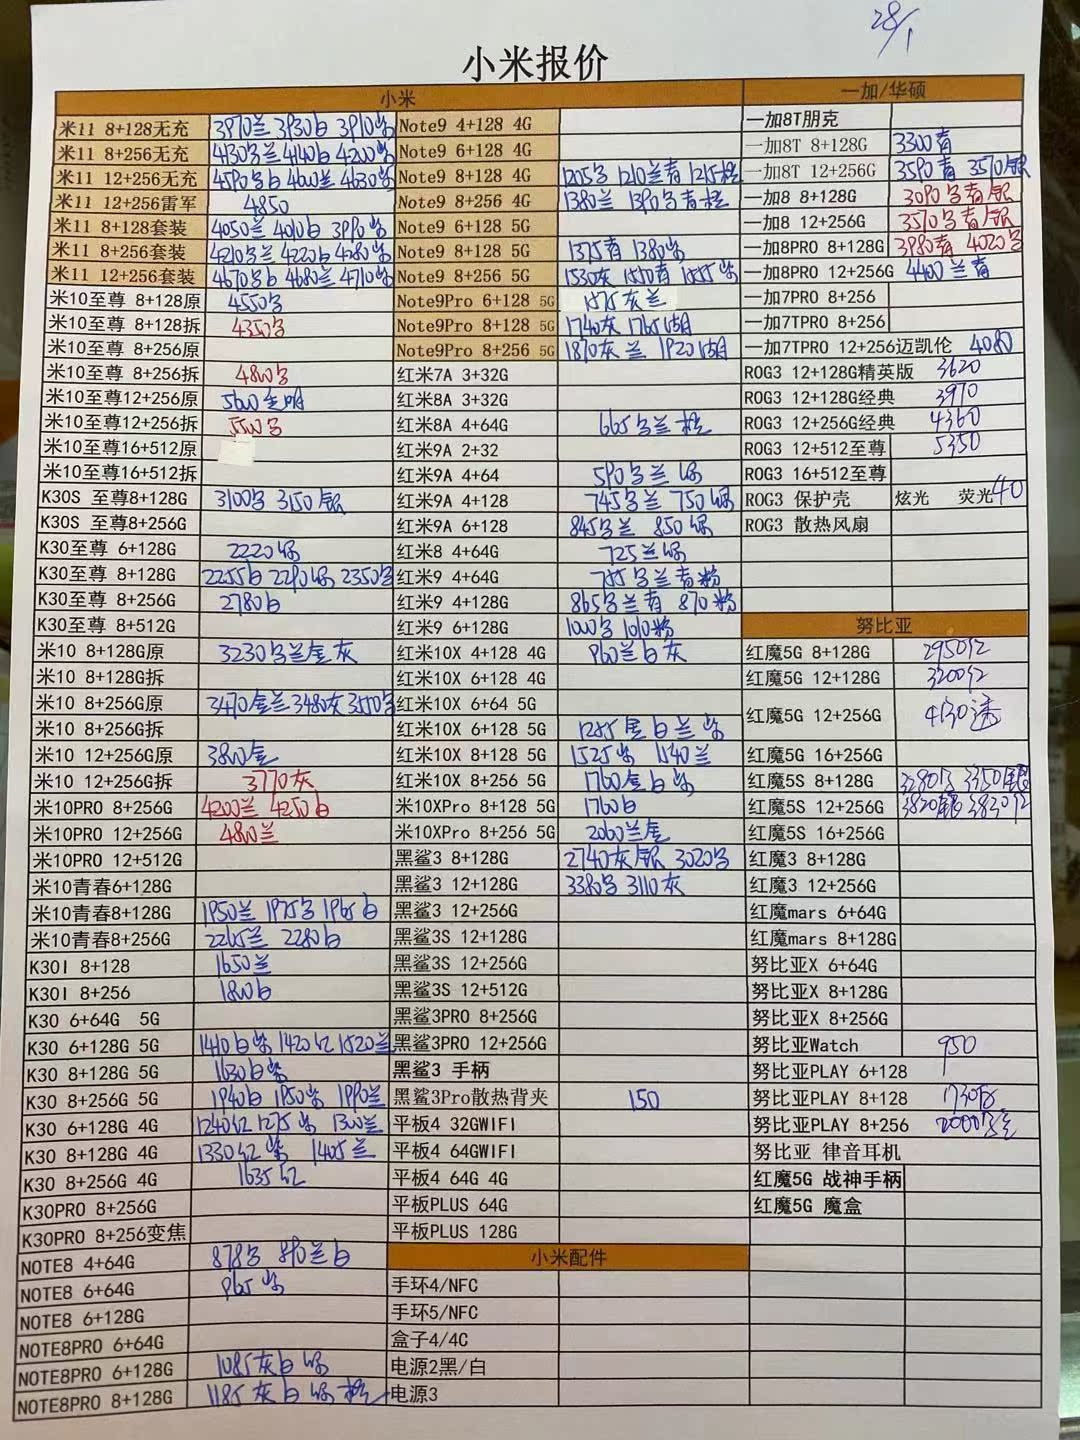 28/1
小米报价
小米 一加/华硕
米11 8+128无充 3970兰 3930白 3910紫 Note9 4+128 4G 一加8T朋克
米11 8+256无充 4130号兰 4140白 4200紫 Note9 6+128 4G 一加8T 8+128G 3300青
米11 12+256无充 Note9 8+128 4G 1205号 1210兰青 1215橙 一加8T 12+256G 3590青 3570银
米11 12+256雷军 4850 Note9 8+256 4G 1380兰 1390号青橙 一加8 8+128G 3090号青银
米11 8+128套装 4050兰 4010白 3990紫 Note9 6+128 5G 一加8 12+256G 3570号青银
米11 8+256套装 4210号兰 4220白 4280紫 Note9 8+128 5G 1375青 1380紫 一加8PRO 8+128G 3980青 4020号
米11 12+256套装 4670号白 4680兰 4710紫 Note9 8+256 5G 1530灰 1550青 1555紫 一加8PRO 12+256G 4400兰青
米10至尊 8+128原 4550号 Note9Pro 6+128 5G 1575灰兰 一加7PRO 8+256
米10至尊 8+128拆 4350号 Note9Pro 8+128 5G 1740灰 1765湖 一加7TPRO 8+256
米10至尊 8+256原 Note9Pro 8+256 5G 1870灰兰 1920湖 一加7TPRO 12+256迈凯伦 4080
米10至尊 8+256拆 4800号 红米7A 3+32G ROG3 12+128G精英版 3620
米10至尊12+256原 5600金明 红米8A 3+32G ROG3 12+128G经典 3970
米10至尊12+256拆 5500号 红米8A 4+64G 665号兰橙 ROG3 12+256G经典 4360
米10至尊16+512原 红米9A 2+32 ROG3 12+512至尊 5350
米10至尊16+512拆 红米9A 4+64 590号兰绿 ROG3 16+512至尊
K30S 至尊8+128G 3100号 3150银 红米9A 4+128 745号兰 750绿 ROG3 保护壳 炫光 荧光40
K30S 至尊8+256G 红米9A 6+128 845号兰 850绿 ROG3 散热风扇
K30至尊 6+128G 2220绿 红米8 4+64G 725兰绿
K30至尊 8+128G 2255白 2290绿 2350号 红米9 4+64G 755号兰青粉
K30至尊 8+256G 2780白 红米9 4+128G 865号兰青 870粉
K30至尊 8+512G 红米9 6+128G 1000号 1010粉 努比亚
米10 8+128G原 3230号兰金灰 红米10X 4+128 4G 960兰白灰 红魔5G 8+128G 2950红
米10 8+128G拆 红米10X 6+128 4G 红魔5G 12+128G 3200红
米10 8+256G原 3470金兰 3480灰 3550号 红米10X 6+64 5G 红魔5G 12+256G 4130透
米10 8+256G拆 红米10X 6+128 5G 1285金白兰紫
米10 12+256G原 3800金 红米10X 8+128 5G 1525紫 1540兰 红魔5G 16+256G
米10 12+256G拆 3770灰 红米10X 8+256 5G 1760金白紫 红魔5S 8+128G
米10PRO 8+256G 4200兰 4250白 米10XPro 8+128 5G 1760白 红魔5S 12+256G 3820银 3830红
米10PRO 12+256G 4800兰 米10XPro 8+256 5G 2060兰金 红魔5S 16+256G
米10PRO 12+512G 黑鲨3 8+128G 2740灰银 3020号 红魔3 8+128G
米10青春6+128G 黑鲨3 12+128G 3380号 3110灰 红魔3 12+256G
米10青春8+128G 1950兰 1975号 1965白 黑鲨3 12+256G 红魔mars 6+64G
米10青春8+256G 2265兰 2280白 黑鲨3S 12+128G 红魔mars 8+128G
K30I 8+128 1650兰 黑鲨3S 12+256G 努比亚X 6+64G
K30I 8+256 1800白 黑鲨3S 12+512G 努比亚X 8+128G
K30 6+64G 5G 黑鲨3PRO 8+256G 努比亚X 8+256G
K30 6+128G 5G 1410白紫 1420红 1520兰 黑鲨3PRO 12+256G 努比亚Watch 950
K30 8+128G 5G 1630白紫 黑鲨3 手柄 努比亚PLAY 6+128
K30 8+256G 5G 1940白 1950紫 1990兰 黑鲨3Pro散热背夹 150 努比亚PLAY 8+128
K30 6+128G 4G 1240红 1275紫 1300兰 平板4 32GWIFI 努比亚PLAY 8+256
K30 8+128G 4G 1330红紫 1405兰 平板4 64GWIFI 努比亚 律音耳机
K30 8+256G 4G 1635红 平板4 64G 4G 红魔5G 战神手柄
K30PRO 8+256G 平板PLUS 64G 红魔5G 魔盒
K30PRO 8+256变焦 平板PLUS 128G
NOTE8 4+64G 878号 890兰白 小米配件
NOTE8 6+64G 965紫 手环4/NFC
NOTE8 6+128G 手环5/NFC
NOTE8PRO 6+64G 盒子4/4C
NOTE8PRO 6+128G 1085灰白绿 电源2黑/白
NOTE8PRO 8+128G 1185灰白绿橙 电源3